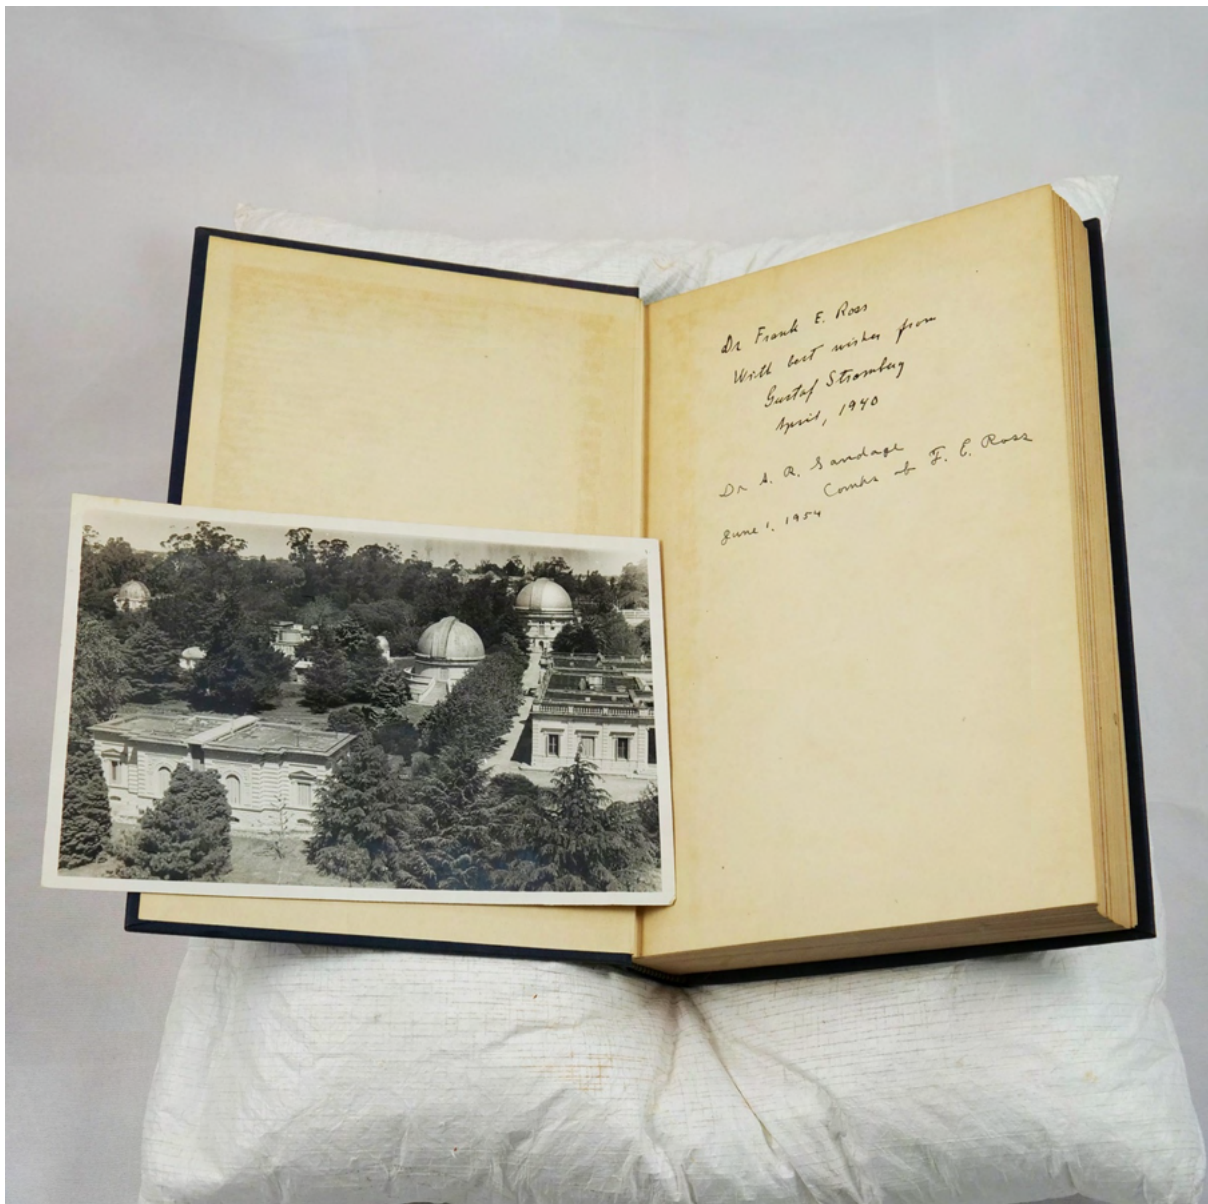 Dr Frank E. Ross
With best wishes from
Gustaf Stromberg
April, 1940
Dr A. R. Sandage
of F. E. Ross
June 1, 1954